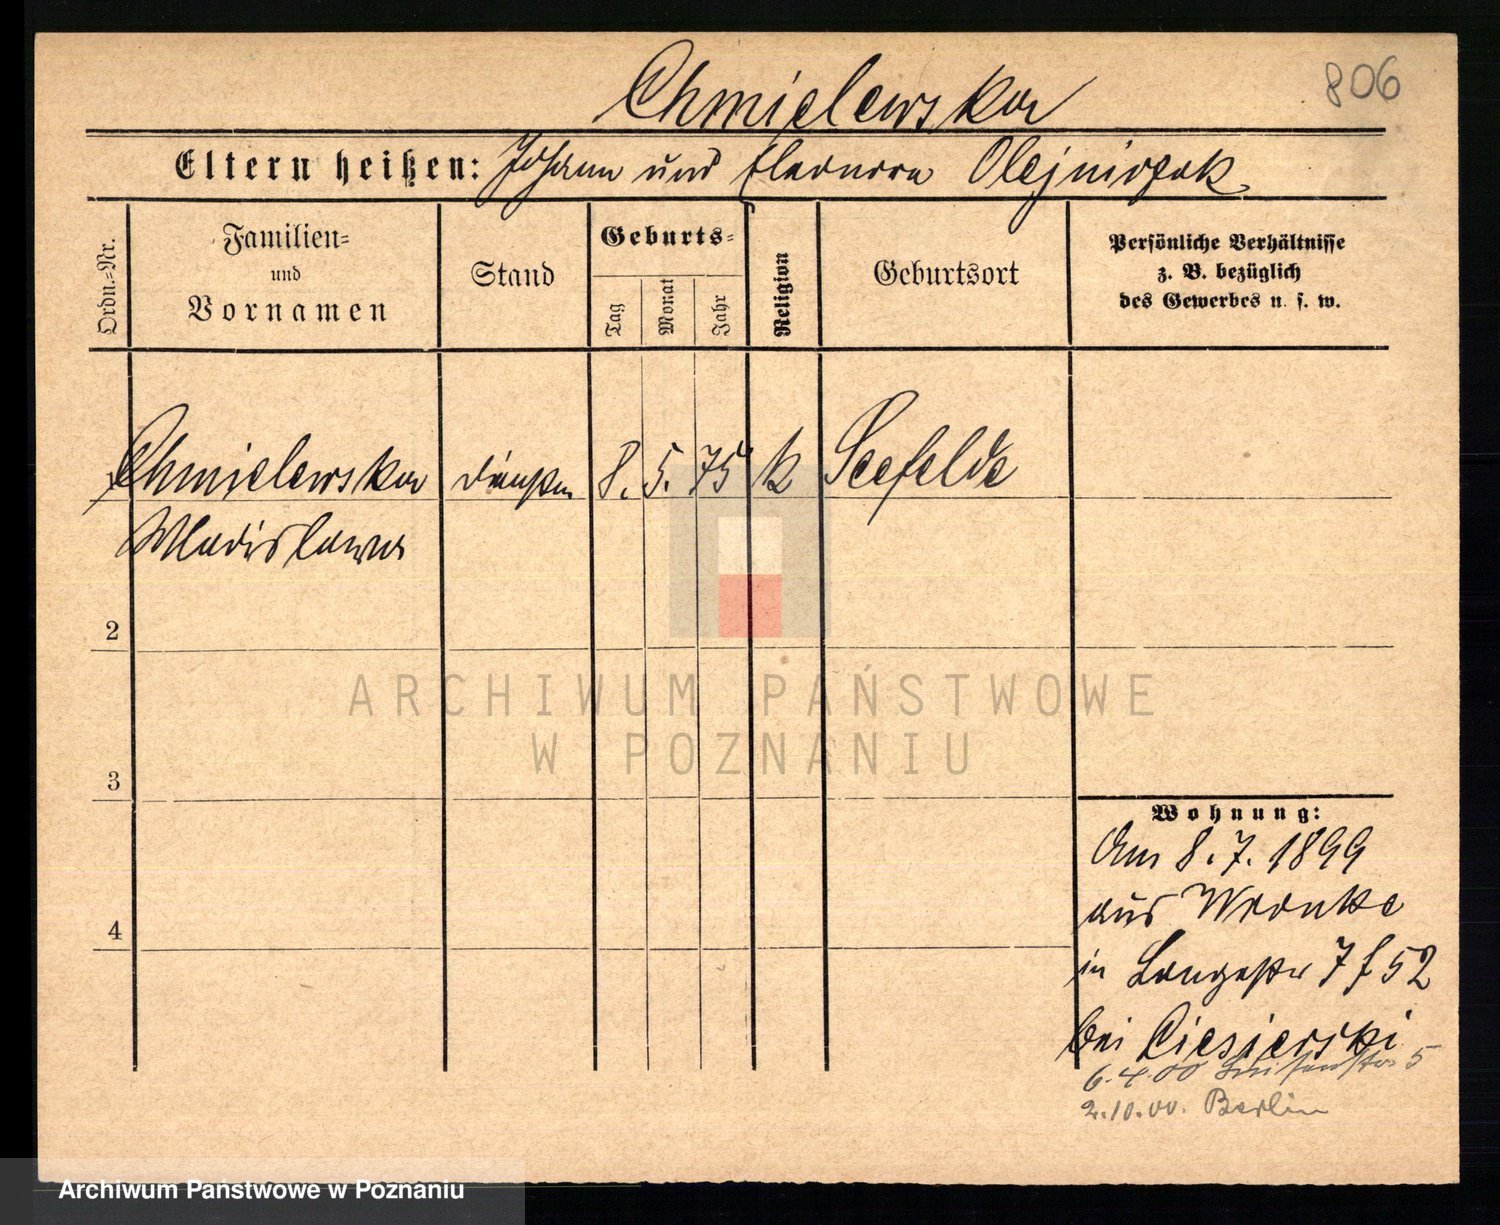 806
Chmielewska
Eltern heißen: Johann und Eleonora Olejniczak
Ordn.-Nr.
Familien-
und
Vornamen
Stand
Geburts-
Tag
Monat
Jahr
Religion
Geburtsort
Persönliche Verhältnisse
z. B. bezüglich
des Gewerbes u. s. w.
Chmielewska
8. 5. 75 k Seefelde
Wladislawa
2
3
4
ARCHIWUM PAŃSTWOWE
W POZNANIU
Wohnung:
Am 8. 7. 1899
aus Wronke
in Langestr 7 f 52
bei Ciesierski
6.4.00 Luisenstr 5
2.10.00. Berlin
Archiwum Państwowe w Poznaniu